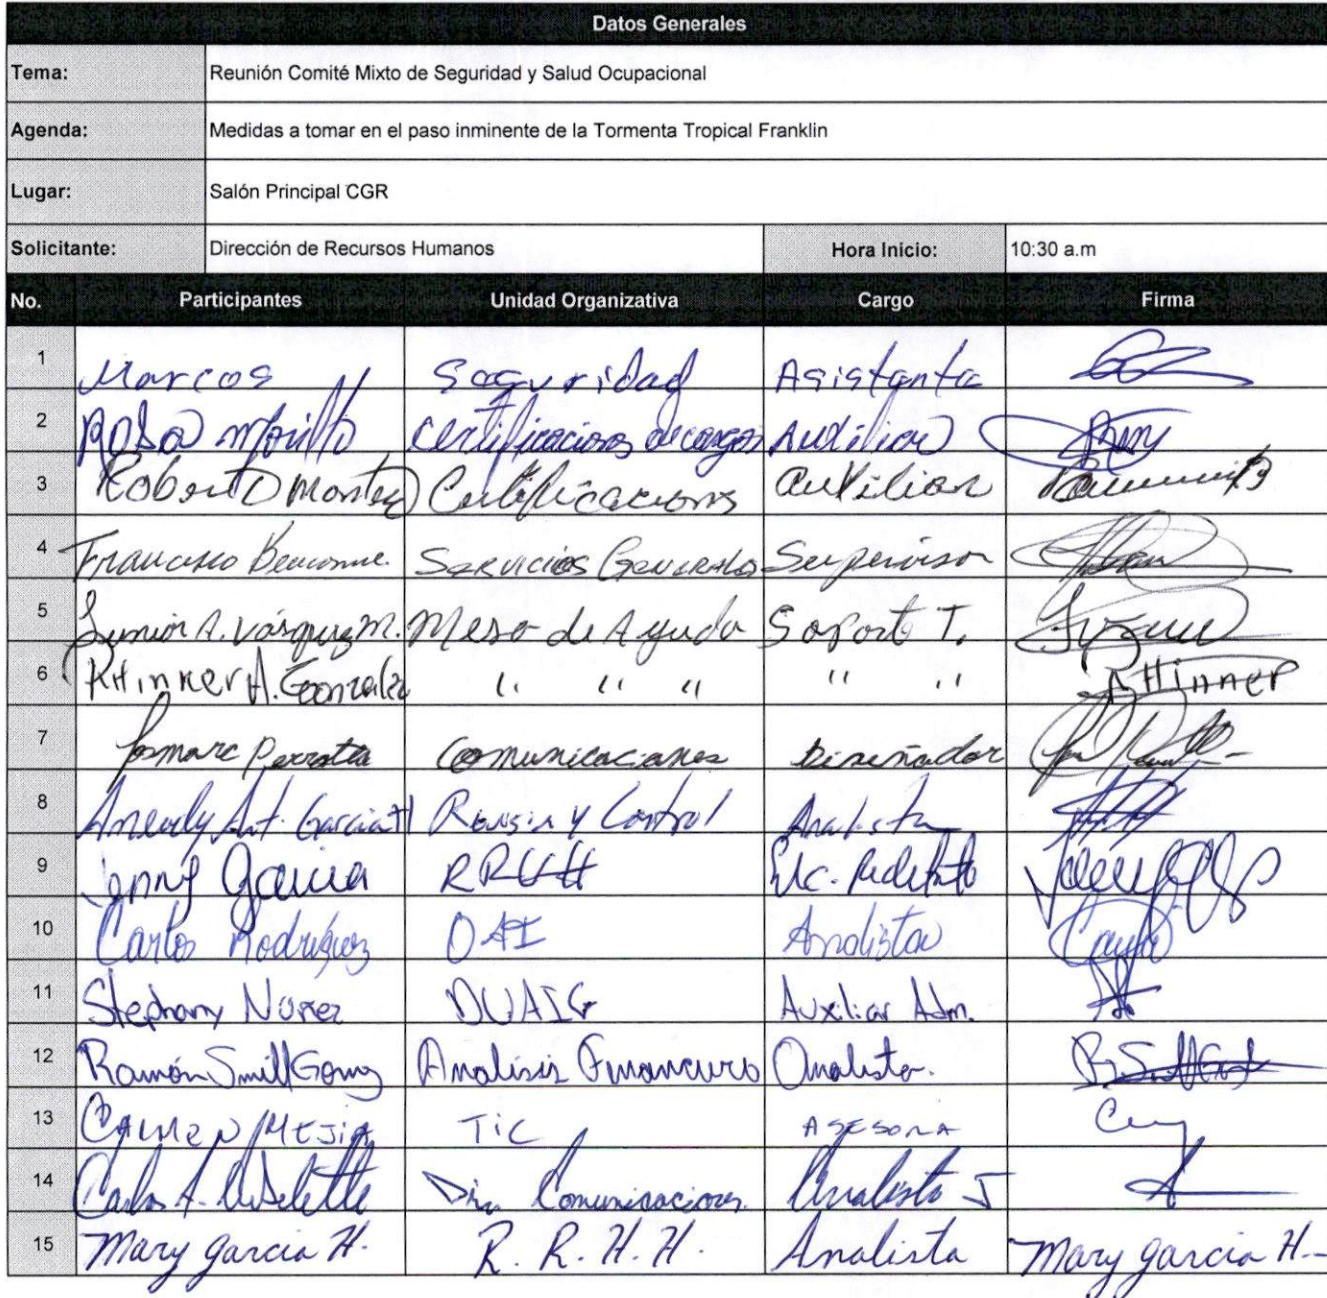 Datos Generales
Tema: Reunión Comité Mixto de Seguridad y Salud Ocupacional
Agenda: Medidas a tomar en el paso inminente de la Tormenta Tropical Franklin
Lugar: Salón Principal CGR
Solicitante: Dirección de Recursos Humanos Hora Inicio: 10:30 a.m
No. Participantes Unidad Organizativa Cargo Firma
1 Marcos Seguridad Asistente
2 Rosa Morillo Certificaciones de cargos Auxiliar
3 Roberto Certificaciones Auxiliar
4 Francisco Servicios Generales Supervisor
5 Junior A. Vásquez M. Mesa de Ayuda Soporte T.
6 A. Gonzalez " " " " "
7 Perrotta Comunicaciones Diseñador
8 Ant. Garcia H Revisión y Control Analista
9 Jenny Garcia RRHH
10 Carlos Rodríguez OAI Analista
11 Stephany Nuñez Auxiliar Adm.
12 Ramón Smill Gomez Analisis Financiero Analista.
13 Carmen Mejia TIC Asesora
14 Carlos A. Comunicaciones Analista
15 Mary Garcia H. R.R.H.H. Analista Mary Garcia H.